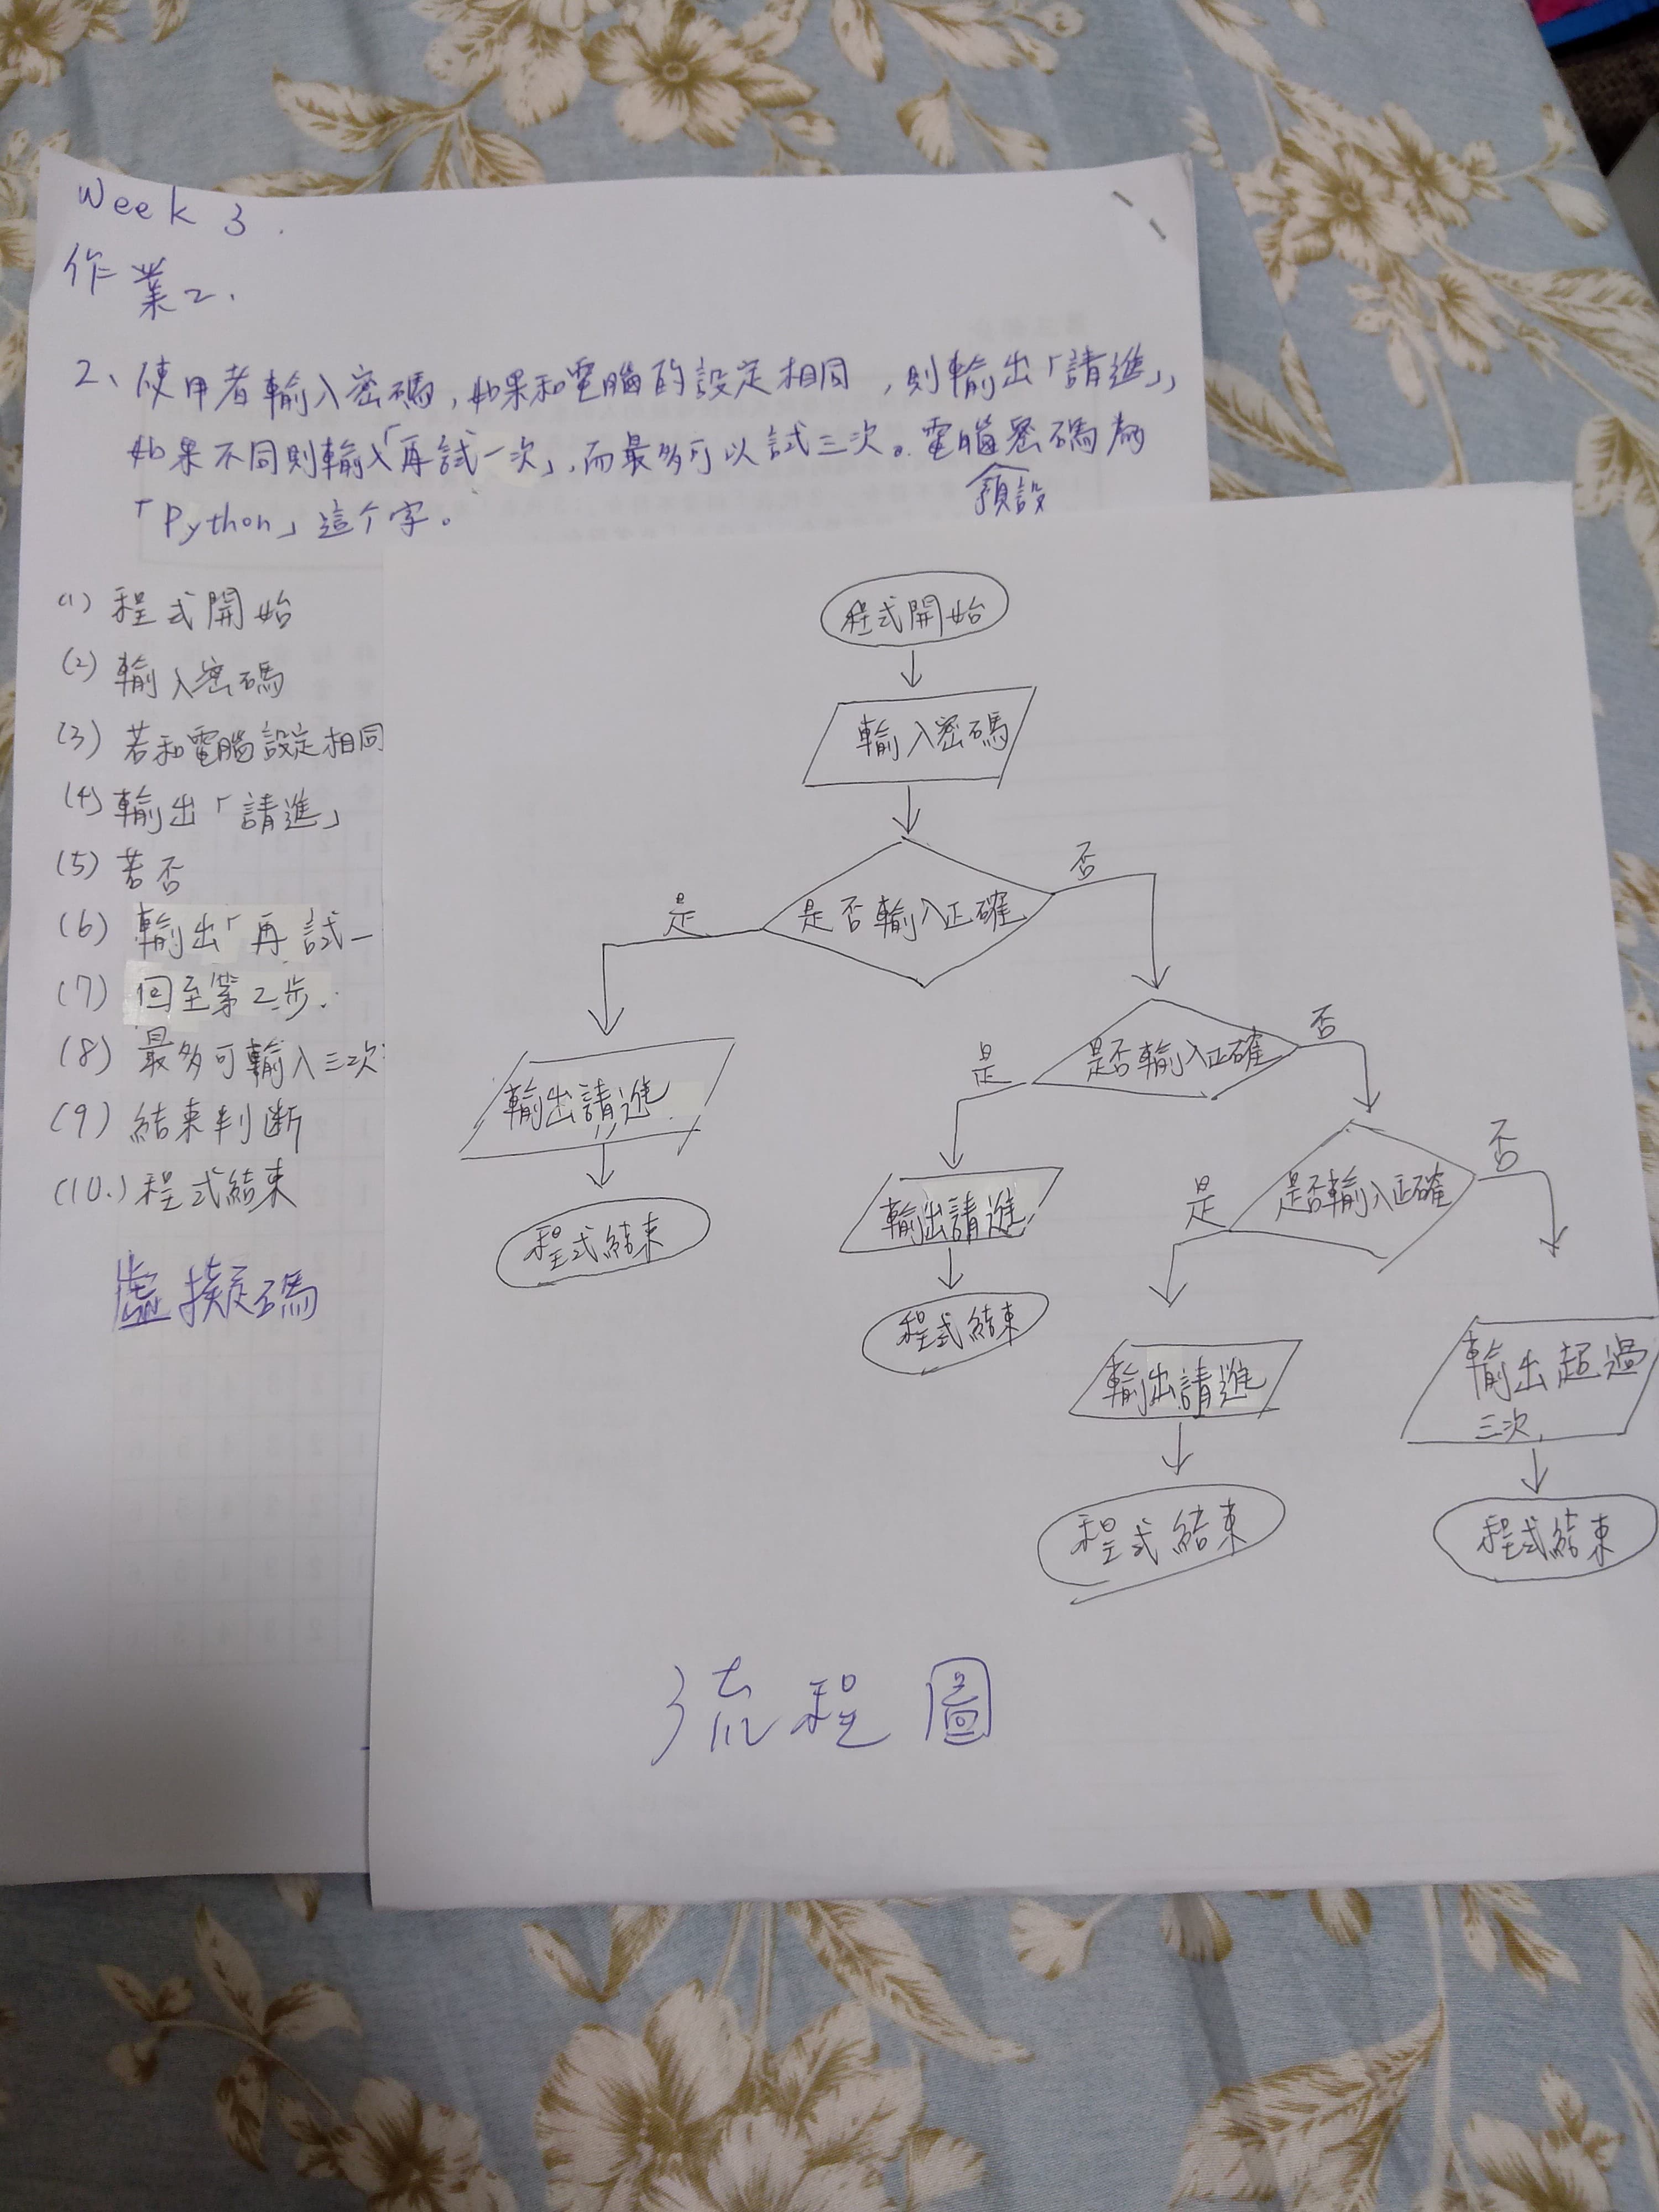 Week 3.
作業2.
2、使用者輸入密碼,如果和電腦的設定相同,則輸出「請進」,
如果不同則輸入「再試一次」,而最多可以試三次。電腦密碼為
預設
「Python」這个字。
(1) 程式開始
(2) 輸入密碼
(3) 若和電腦設定相同
(4) 輸出「請進」
(5) 若否
(6) 輸出「再試一
(7) 回至第2步.
(8) 最多可輸入三次
(9) 結束判斷
(10.) 程式結束
虛擬碼
程式開始
輸入密碼
是否輸入正確
是
否
輸出請進
程式結束
是否輸入正確
是
否
輸出請進
程式結束
是否輸入正確
是
否
輸出請進
程式結束
輸出超過
三次.
程式結束
流程圖